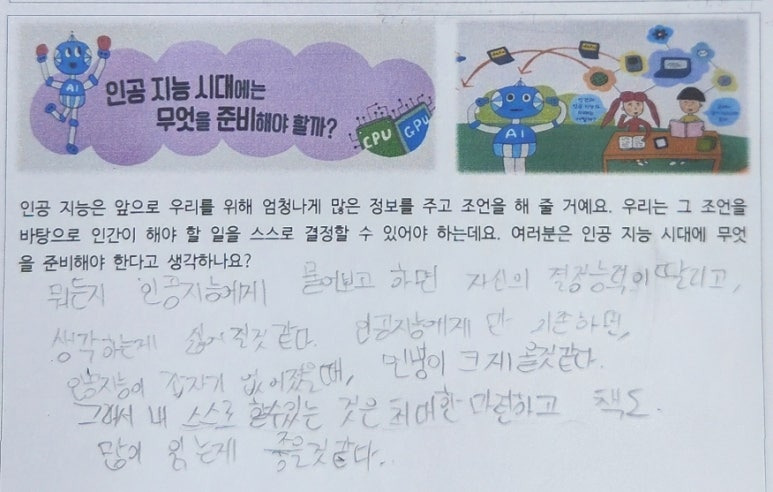 인공 지능 시대에는
무엇을 준비해야 할까?
AI
CPU
GPU
AI
인공 지능은 앞으로 우리를 위해 엄청나게 많은 정보를 주고 조언을 해 줄 거예요. 우리는 그 조언을
바탕으로 인간이 해야 할 일을 스스로 결정할 수 있어야 하는데요. 여러분은 인공 지능 시대에 무엇
을 준비해야 한다고 생각하나요?
뭐든지 인공지능에게 물어보고 하면 자신의 결정능력이 딸리고,
생각하는게 싫어질것 같다. 인공지능에게 만 기존하면,
인공지능이 갑자기 없어졌을때, 멘붕이 크게 올것같다.
그래서 내 스스로 할수있는 것은 최대한 마련하고 책도
많이 읽는게 좋을것같다..